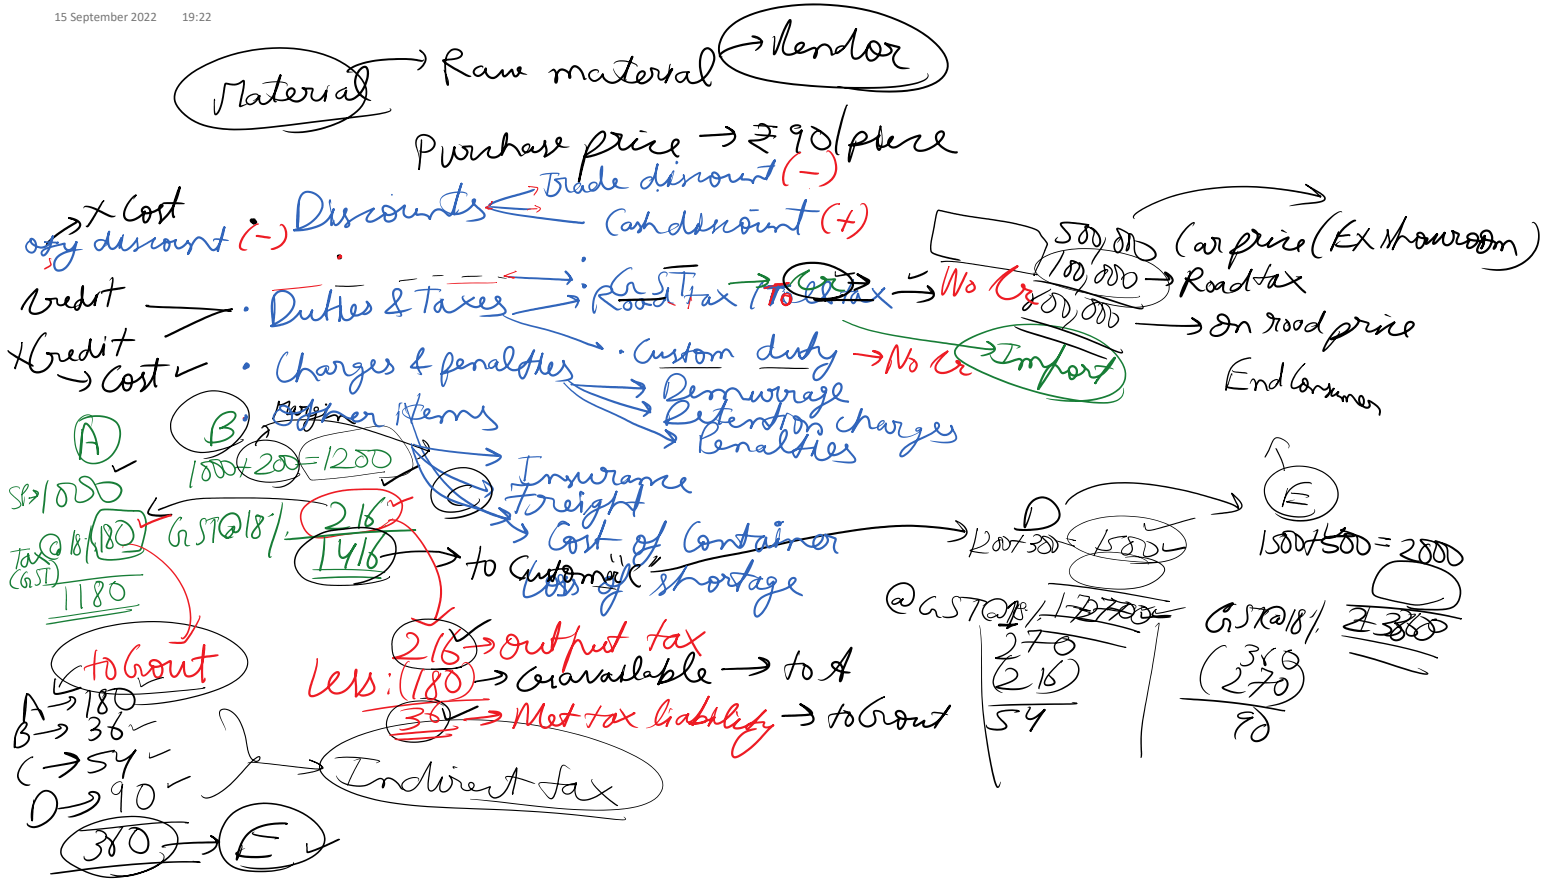 15 September 2022 19:22
Material → Raw material → Vendor
Purchase price → ₹90/piece
• Discounts
Trade discount (-)
Cash discount (+)
X Cost
qty discount (-)
Credit
X Credit
→ Cost ✓
• Duties & Taxes
• GST → Cr
Road tax / Toll tax → No Cr
• Custom duty → No Cr
Import
• Charges & penalties
Demurrage
Detention charges
Penalties
• Other items
Insurance
Freight
Cost of Container
Loss of shortage
500,000 Car price (Ex showroom)
100,000 → Road tax
600,000 → On road price
End Consumer
A
SP→1000
Tax@18% 180
(GST)
1180
B
Margin
1000+200=1200
GST@18% 216
1416 → to Customer "C"
C
216 → output tax
Less: (180) → Cr available → to A
36 → Net tax liability → to Govt
to Govt
A → 180
B → 36
C → 54
D → 90
360 → E
Indirect tax
D
1200+300=1500
@GST@18% 1770
270
(216)
54
E
1500+500=2000
GST@18% 2360
360
(270)
90